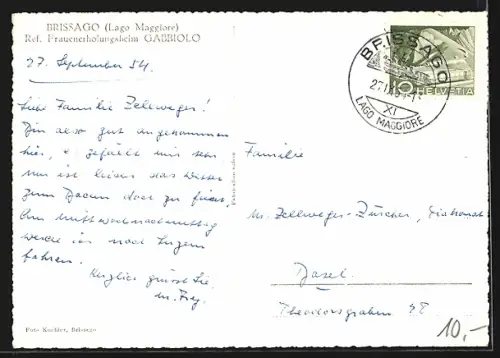 BRISSAGO (Lago Maggiore)
Ref. Frauenerholungsheim GABBIOLO
27. September 54.
Liebe Familie Zellweger!
Bin also gut angekommen
hier, & gefällt mir sehr
nur ist leider das Wetter
zum Baden
Am Mittwochnachmittag
werde ich noch Luzern
fahren.
Herzlich grüsst Sie
M. Frey.
Foto Kuebler, Brissago
BRISSAGO
LAGO MAGGIORE
XI
10 HELVETIA
Familie
M. Zellweger-Zürcher, Diakonat
Basel.
Theodorsgraben
10,-